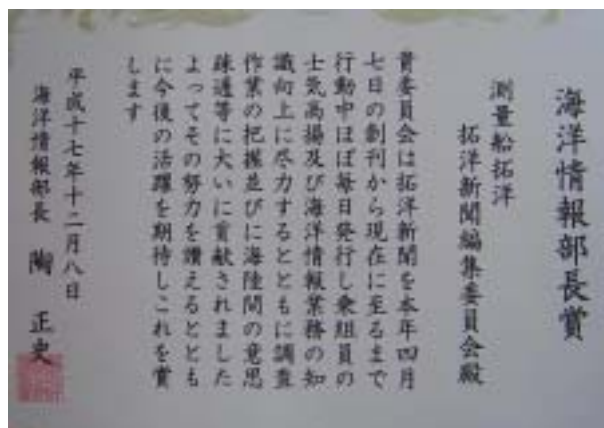 海洋情報部長賞
測量船拓洋
拓洋新聞編集委員会殿
貴委員会は拓洋新聞を本年四月
七日の創刊から現在に至るまで
行動中ほぼ毎日発行し乗組員の
士気高揚及び海洋情報業務の知
識向上に尽力するとともに調査
作業の把握並びに海陸間の意思
疎通等に大いに貢献されました
よってその努力を讃えるととも
に今後の活躍を期待しこれを賞
します
平成十七年十二月八日
海洋情報部長 陶 正史